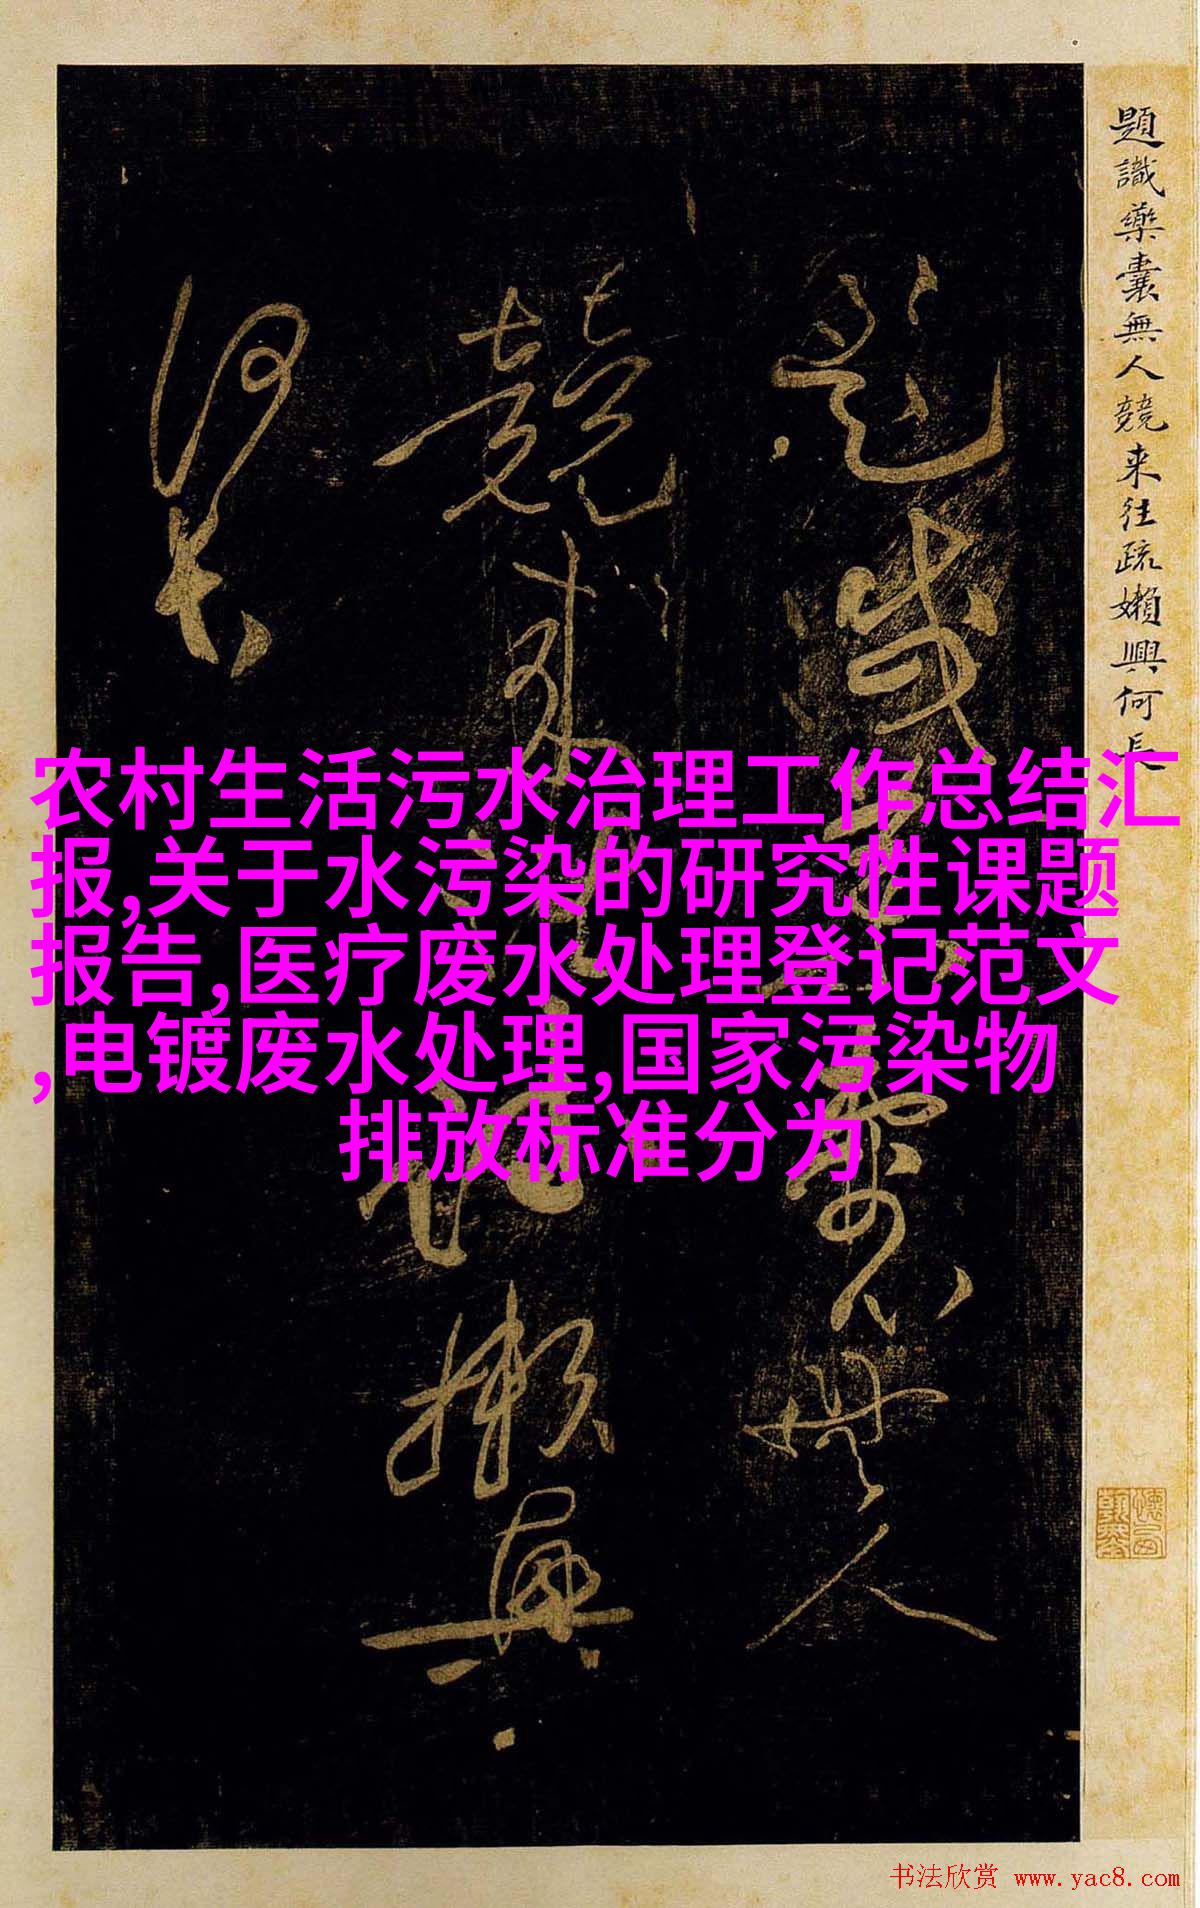 題識藥囊無人競来往疏嬾興何長
題識藥囊無人
競来往疏嬾興
何長
农村生活污水治理工作总结汇
报,关于水污染的研究性课题
报告,医疗废水处理登记范文
,电镀废水处理,国家污染物
排放标准分为
书法欣赏 www.yac8.com